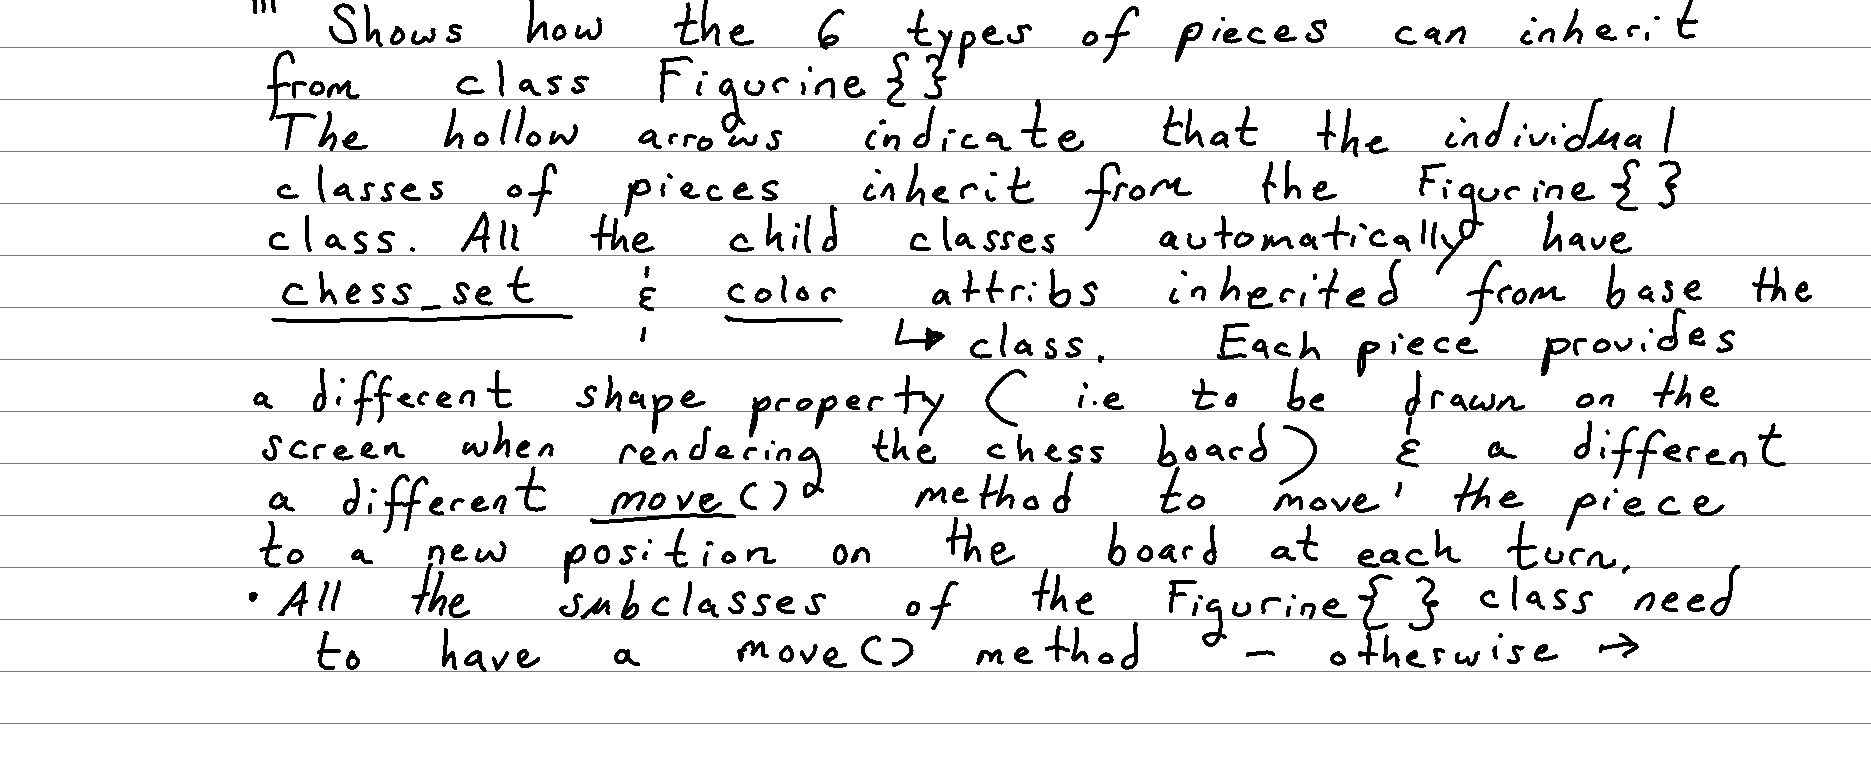 Shows how the 6 types of pieces can inherit
from class Figurine {}
The hollow arrows indicate that the individual
classes of pieces inherit from the Figurine { }
class. All the child classes automatically have
chess_set & color attribs inherited from base the
↳ class. Each piece provides
a different shape property ( i.e to be drawn on the
screen when rendering the chess board) & a different
a different move() method to move the piece
to a new position on the board at each turn.
• All the subclasses of the Figurine { } class need
to have a move() method - otherwise →